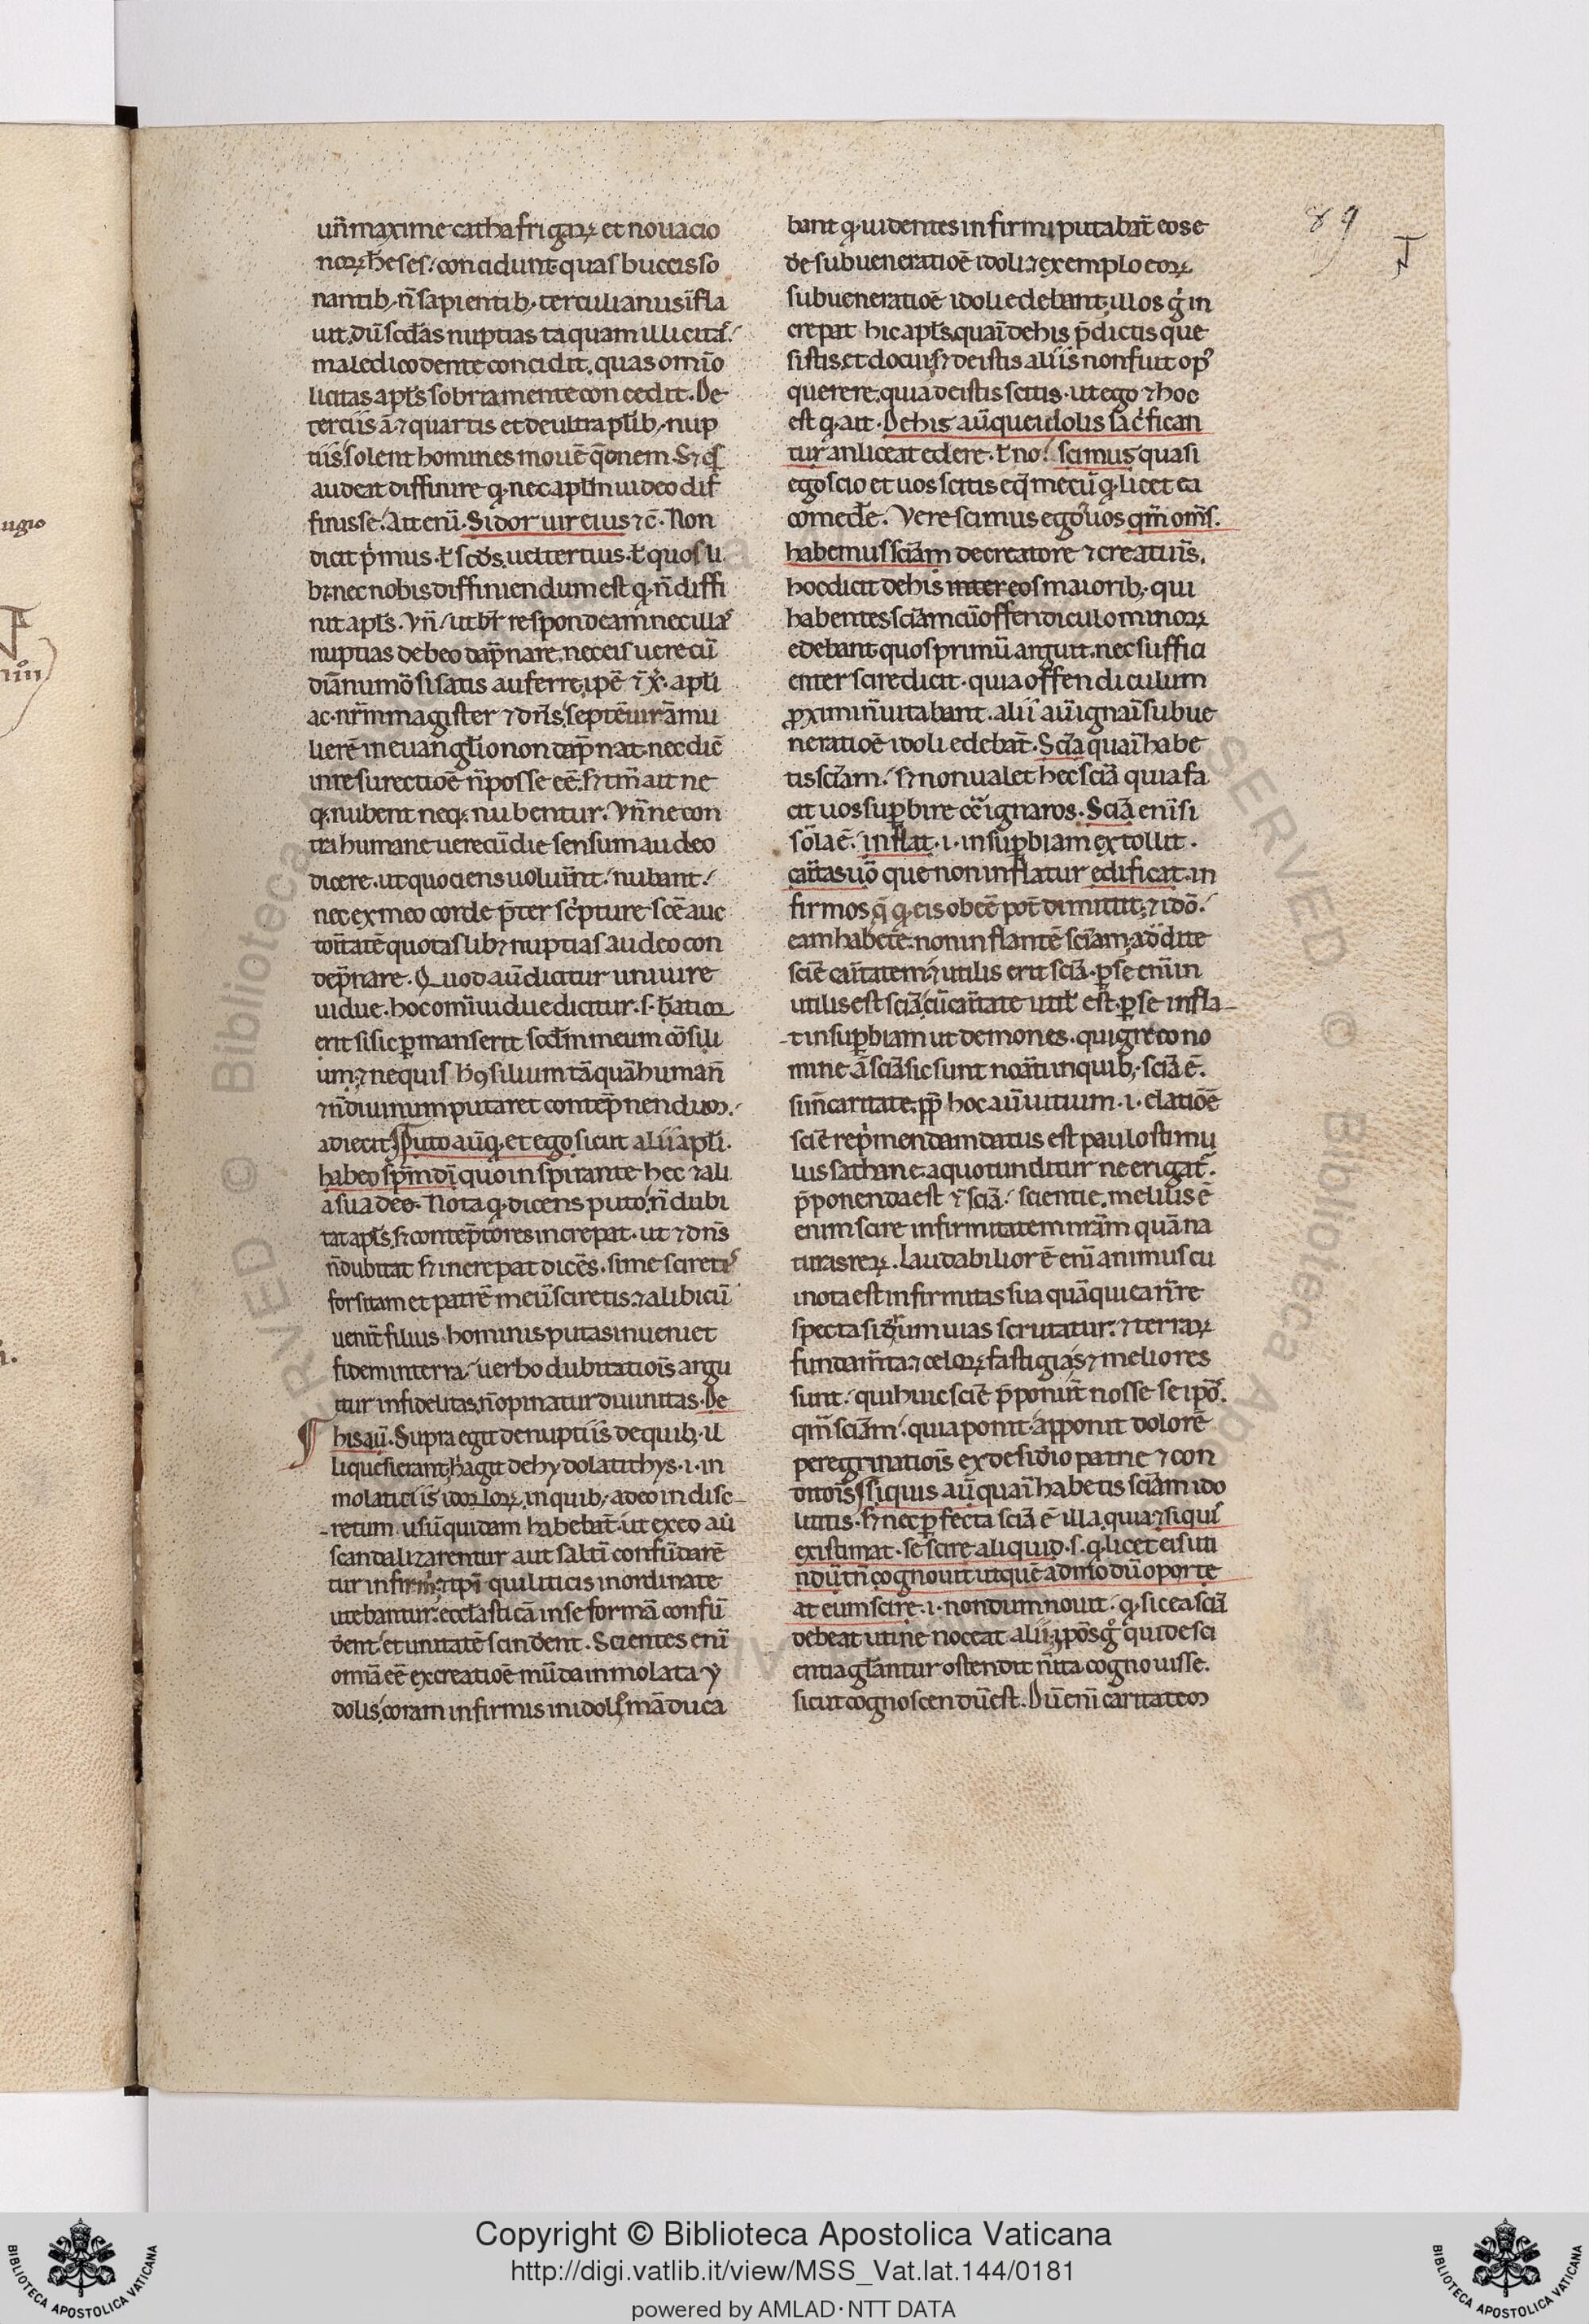 uñ maxime cathafrigaꝝ et nouacio
noꝝ ħeses concidunt quas buccis so
nantib; ñ sapientib; tertulianus īfla
uit. dū scd̄as nuptias taquam illicitas
maledico dente concidit. quas omīo
licitas apl̄s sobria mente concedit. De
terciis ā ⁊ quartis et de ultra plīb; nup
tiis solent homines mouē q̄onem. S; q̄s
audeat diffinire q nec aplm̄ uideo dif
finisse. Ait eni. Si dor uir eius ⁊c̄. Non
dicit pͥmus. ł scds. uel tertius. ł quosli
b; nec nobis diffiniendum est q ñ diffi
nit apl̄s. Vñ ut br̄ respondeam nec ullas
nuptias debeo dāpnare. nec eis uerecū
diā numōsitatis auferre. ipē ⁊ x apl̄i
ac nr̄m magister ⁊ dn̄s. septēuirā mu
lierē in euanglio non dāpnat. nec dic̄
in resurectiōe ñ posse eē. s; tm̄ ait ne
q; nubent neq; nubentur. Vñ ne con
tra humane uerecūdie sensum audeo
dicere. ut quociens uoluīnt nubant.
nec ex meo corde p̄ter scͥpture scē auc
toritatē quotaslib; nuptias audeo con
dēpnare. Quod aū dicitur uniuire
uidue. hoc omī uidue dicitur. s. b̄atior
erit si sic ꝑmanserit scd̄m meum cōsili
um. ⁊ ne quis hͦ ꝯsilium tāquā humañ
⁊ ñ diuinum putaret contēpnendum.
adiecit. Puto aū q et ego sicut alii apl̄i.
habeo sp̄m dī quo inspirante hec ⁊ ali
a suadeo. Nota q dicens puto. ñ dubi
tat apl̄s. s; contēptores increpat. ut ⁊ dn̄s
ñ dubitat s; increpat dicēs. si me sciretis
forsitam et patrē meū sciretis. ⁊ alibi cū
uenit filius hominis putas inueniet
fidem in terra. uerbo dubitatiōis argu
itur infidelitas. ñ opinatur diuinitas. De
his aū. Supra egit de nuptiis de quib; il
li quesierant. h̄ agit de hydolatithys. i. in
molaticiis idoloꝝ. in quib; adeo indisc-
-retum usū quidam habebāt. ut ex eo aū
scandalizarentur aut saltī confūdarē
tur infirmi. ⁊ ipi qui liticis inordinate
utebantur. eccl̄asticā in se formā confū
dent et unitatē scindent. Scientes eni
omīa eē ex creatiōe mūda inmolata y
dolis. coram infirmis in idolis māduca
bant q uidentes infirmi putabāt eos e
de sub ueneratiōe idoli. ⁊ exemplo eoꝝ
sub ueneratiōe idoli edebant. illos gͥ in
crepat hic apl̄s. quaī de his p̄dictis que
sistis. et docui. s; de istis aliis non fuit opꝰ
querere. quia de istis scitis. ut ego ⁊ hoc
est q ait. De his aū que idolis sacͥfican
tur an liceat edere. ł no. scimus quasi
ego scio et uos scitis eq̄ mecū q licet ea
comedē. Vere scimus ego uos qm̄ oms.
habemus sciām de creatore ⁊ creatuis.
hoc dicit de his inter eos maiorib; qui
habentes sciām cū offendiculo minoꝝ
edebant quos primū arguit. nec suffici
enter scire dicit. quia offendiculum
ꝓximi ñ uitabant. alii aū ignari sub ue
neratiōe idoli edebāt. Sciā quaī habe
tis sciām. s; non ualet hec sciā quia fa
cit uos suꝑbire cͨ ignaros. Sciā enī si
sola ē. inflat. i. in suꝑbiam extollit.
caritas uō que non inflatur edificat. in
firmos q̄ q eis obeē pot dimittit. ⁊ idō.
eam habete. non inflantē sciam. addite
sciē caritatem. ⁊ utilis erit sciā. ꝑ se enī in
utilis est sciā. cū caritate utił est. ꝑ se infla-
-t in suꝑbiam ut demones. qui greco no
mine ā sciā sic sunt noāti in quib; sciā ē.
sīn caritate. ꝓp̄ hoc aū uitium. i. elatiōē
sciē rep̄mendam datus est paulo stimu
lus sathane. a quo tunditur ne erigat̄.
p̄ponenda est ⁊ sciā scientie. melius ē
enim scire infirmitatem nr̄am quā na
turas reꝝ. Laudabilior ē enī animus cu
i nota est infirmitas sua quā qui ea ñ re
specta sidum uias scrutatur. ⁊ terraꝝ
fundam̄ta. ⁊ celoꝝ fastigia. s; meliores
sunt. qui huic sciē p̄ponūt nosse se ipōs.
qm̄ sciam. quia ponit apponit dolorē
peregrinatiōis ex desidio patrie ⁊ con
ditoris. Si quis aū quaī habetis sciām ido
lititis. s; nec ꝑfecta sciā ē illa. quia si quis
existimat se scire aliquid. s. q licet eis uti
ndū tn̄ cognouit utquē admodū oporte
at eum scire. i. nondum nouit. q sic ea sciā
debeat uti ne noceat alii. ⁊ ipōs gͥ qui de sci
entia gl̄antur ostendit n̄ ita cognouisse.
sicut cognoscendū est. Dū enī caritatem
89